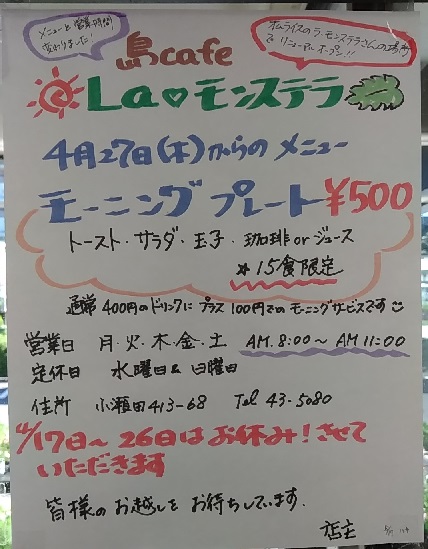 メニューと営業時間
変わりました!
オムライスのラ・モンステラさんの場所
で リニューアルオープン!!
島cafe
La♡モンステラ
4月27日(木)からの メニュー
モーニング プレート ¥500
トースト・サラダ・玉子・珈琲 or ジュース
☆15食限定
通常 400円のドリンクに プラス 100円での モーニングサービスです
営業日 月・火・木・金・土 AM.8:00~AM 11:00
定休日 水曜日 & 日曜日
住所 小瀬田413-68 Tel 43-5080
4/17日~26日は お休み!させて
いただきます
皆様の お越しを お待ちしています.
店主